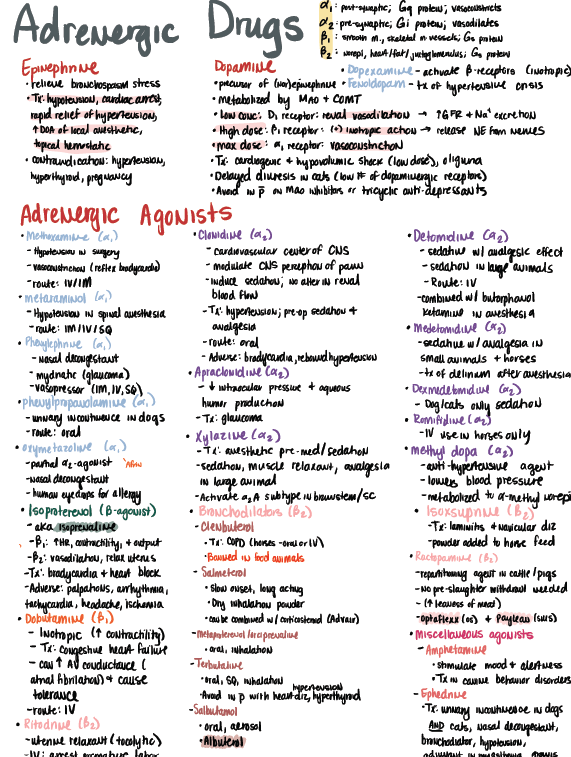 Adrenergic Drugs
α1: post-synaptic; Gq protein; vasoconstricts
α2: pre-synaptic; Gi protein; vasodilates
β1: smooth m., skeletal m vessels; Gs protein
β2: norepi, heart/fat/juxtaglomerulus; Gs protein
Epinephrine
• relieve bronchospasm stress
• Tx: hypotension, cardiac arrest,
rapid relief of hypertension,
↑ DOA of local anesthetic,
topical hemostatic
• contraindication: hypertension,
hyperthyroid, pregnancy
Dopamine
• precursor of (nor)epinephrine
• metabolized by MAO + COMT
• Low conc: D1 receptor: renal vasodilation → ↑GFR + Na+ excretion
• High dose: β1 receptor: (+) inotropic action → release NE from nerves
• max dose: α1 receptor: vasoconstriction
• Tx: cardiogenic & hypovolumic shock (low dose), oliguria
• Delayed diuresis in cats (low # of dopaminergic receptors)
• Avoid in p̄ on MAO inhibitors or tricyclic anti-depressants
• Dopexamine - activate β-receptors (inotropic)
• Fenoldopam - tx of hypertensive crisis
Adrenergic Agonists
• Methoxamine (α1)
- Hypotension in surgery
- vasoconstriction (reflex bradycardia)
- route: IV/IM
• metaraminol (α1)
- Hypotension in spinal anesthesia
- route: IM/IV/SQ
• Phenylephrine (α1)
- Nasal decongestant
- mydriatic (glaucoma)
- vasopressor (IM, IV, SQ)
• phenylpropanolamine (α1)
- urinary incontinence in dogs
- route: oral
• oxymetazoline (α1)
- partial α2-agonist
- nasal decongestant
- human eyedrops for allergy
• Isoproterenol (β-agonist)
- aka isoprenaline
- β1: ↑HR, contractility, + output
- β2: vasodilation, relax uterus
- Tx: bradycardia + heart block
- Adverse: palpations, arrhythmia,
tachycardia, headache, ischemia
• Dobutamine (β1)
- Inotropic (↑ contractility)
- Tx: congestive heart failure
- can ↑ AV conductance (
atrial fibrillation) + cause
tolerance
- route: IV
• Ritodrine (β2)
- uterine relaxant (tocolytic)
- IV: arrest premature labor
• Clonidine (α2)
- cardiovascular center of CNS
- modulate CNS perception of pain
- induce sedation; no alter in renal
blood flow
- Tx: hypertension; pre-op sedation &
analgesia
- route: oral
- Adverse: bradycardia, rebound hypertension
• Apraclonidine (α2)
- ↓ intraocular pressure + aqueous
humor production
- Tx: glaucoma
• Xylazine (α2)
- Tx: anesthetic pre-med/sedation
- sedation, muscle relaxant, analgesia
in large animal
- Activate α2A subtype in brainstem/SC
• Bronchodilators (β2)
- Clenbuterol
• Tx: COPD (horses - oral or IV)
• Banned in food animals
- Salmeterol
• Slow onset, long acting
• Dry inhalation powder
• can be combined w/ corticosteroid (Advair)
- Metaproterenol/orciprenaline
• oral, inhalation
- Terbutaline
• oral, SQ, inhalation
• Avoid in p̄ with heart diz, hyperthyroid
hypertension
- Salbutamol
• oral, aerosol
• Albuterol
• Detomidine (α2)
- sedative w/ analgesic effect
- sedation in large animals
- Route: IV
- combined w/ butorphanol
ketamine in anesthesia
• Medetomidine (α2)
- sedative w/ analgesia in
small animals + horses
- tx of delirium after anesthesia
• Dexmedetomidine (α2)
- Dog/cats only sedation
• Romifidine (α2)
- IV use in horses only
• methyl dopa (α2)
- anti-hypertensive agent
- lowers blood pressure
- metabolized to α-methyl norepi
• Isoxsuprine (β2)
- Tx: laminitis + navicular diz
- powder added to horse feed
• Ractopamine (β2)
- repartitioning agent in cattle/pigs
- No pre-slaughter withdrawl needed
- (↑ leaness of meat)
- Optaflexx (os) + Paylean (sus)
• Miscellaneous agonists
- Amphetamine
• stimulate mood + alertness
• Tx in canine behavior disorders
- Ephedrine
• Tx: urinary incontinence in dogs
AND cats, nasal decongestant,
bronchodilator, hypotension,